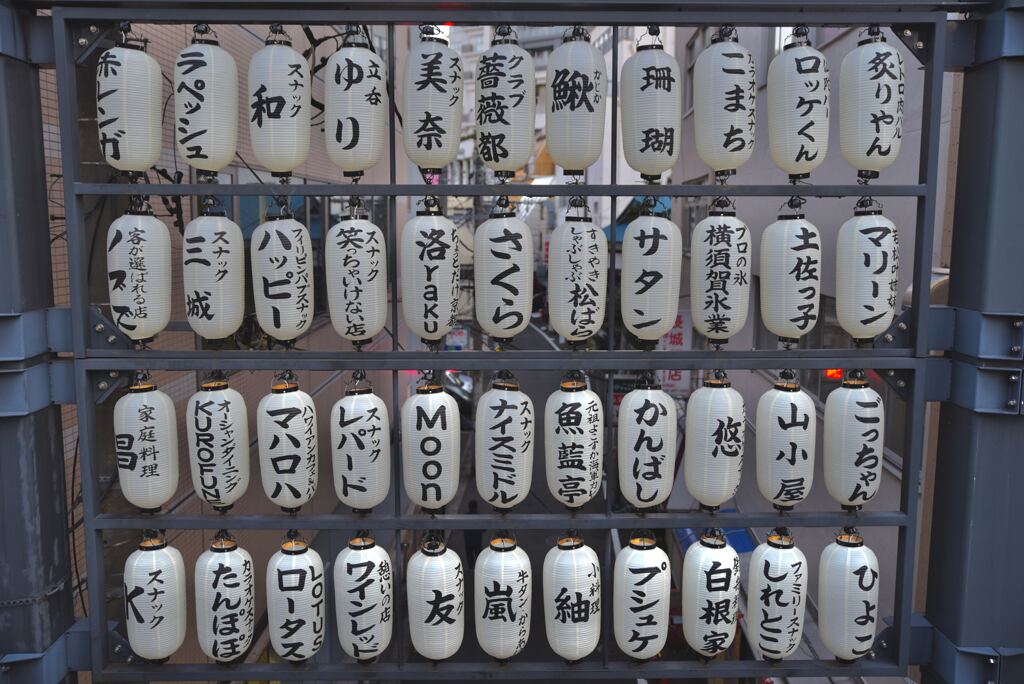 赤レンガ
ラペッシュ
スナック
和
立呑
ゆり
スナック
美奈
クラブ
薔薇都
かじか
鰍
珊瑚
カラオケスナック
こまち
ロッケくん
トロ肉バル
炙りやん
客が選ばれる店
スナック
三城
フィリピンパブスナック
ハッピー
スナック
笑っちゃいけない店
洛raku
さくら
すきやき
しゃぶしゃぶ
松ばる
サタン
プロの氷
横須賀氷業
土佐っ子
マリーン
家庭料理
昌
オーシャンダイニング
KUROFUNE
マハロハ
スナック
レパード
Moon
スナック
ナイスミドル
元祖よこすか海軍カレー
魚藍亭
かんばし
悠
山小屋
ごっちゃん
スナック
K
カラオケスナック
たんぽぽ
LOTUS
ロータス
憩いの店
ワインレッド
スナック
友
牛タン・からあげ
嵐
小料理
紬
プシュケ
白根家
ファミリースナック
しれとこ
ひよこ